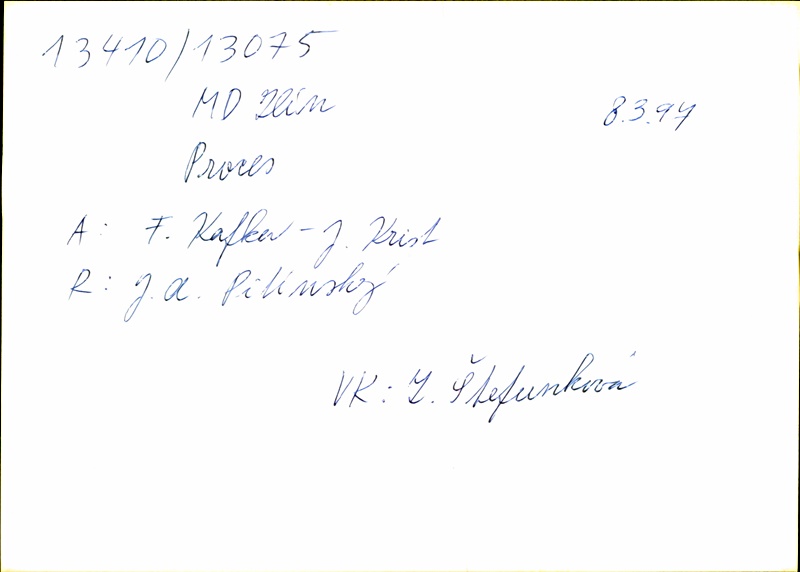 13410/13075
MD Zlín 8.3.97
Proces
A: F. Kafka - J. Krist
R: J. A. Pitínský
VK: Z. Štefunková